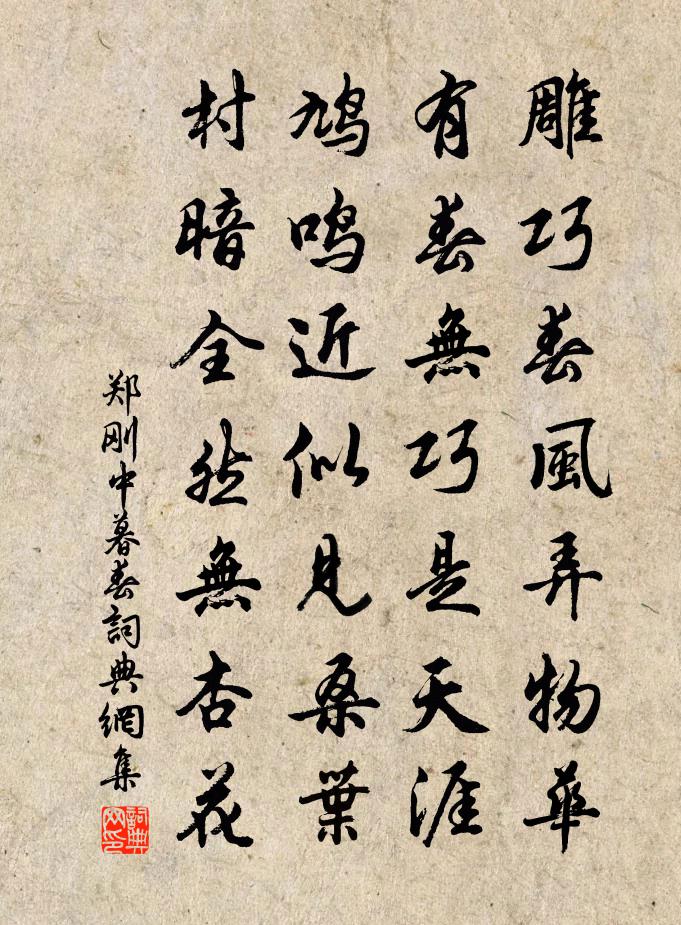 雕巧春風弄物華
有春無巧是天涯
鳩鳴近似見桑葉
村暗全然無杏花
郑刚中暮春詞典網集
詞典网印